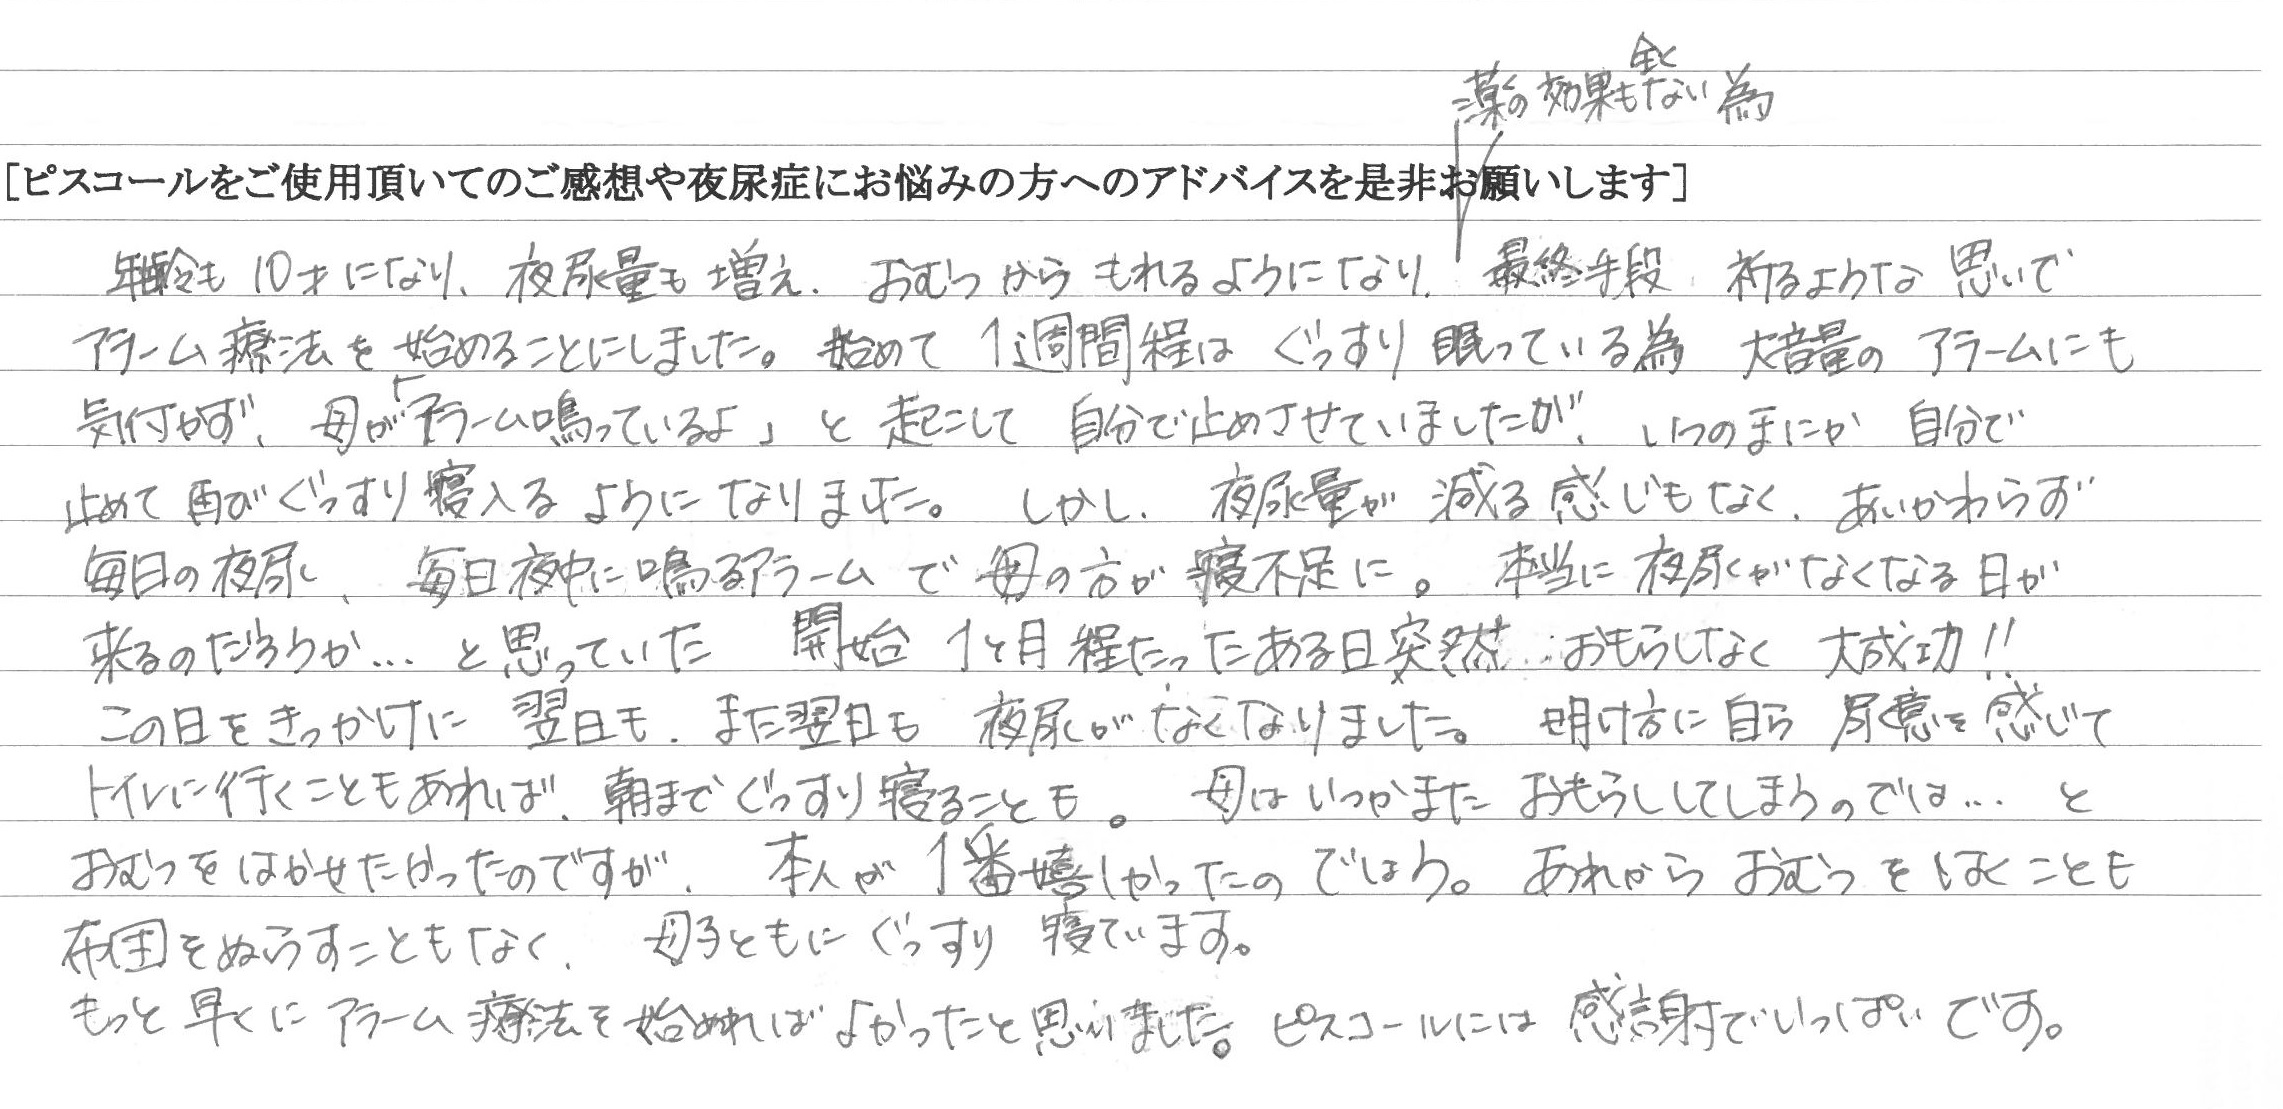 全く
薬の効果もない為
[ピスコールをご使用頂いてのご感想や夜尿症にお悩みの方へのアドバイスを是非お願いします]
年齢も10才になり、夜尿量も増え、おむつからもれるようになり、最終手段、祈るような思いで
アラーム療法を始めることにしました。始めて1週間程はぐっすり眠っている為大音量のアラームにも
気付かず、母が「アラーム鳴っているよ」と起こして自分で止めさせていましたが、いつのまにか自分で
止めて再びぐっすり寝入るようになりました。しかし、夜尿量が減る感じもなく、あいかわらず
毎日の夜尿、毎日夜中に鳴るアラームで母の方が寝不足に。本当に夜尿がなくなる日が
来るのだろうか…と思っていた開始1ヶ月程たったある日突然おもらしなく大成功!!
この日をきっかけに翌日も、また翌日も夜尿がなくなりました。明け方に自ら尿意を感じて
トイレに行くこともあれば、朝までぐっすり寝ることも。母はいつかまたおもらししてしまうのでは…と
おむつをはかせたかったのですが、本人が1番嬉しかったのでしょう。あれからおむつをはくことも
布団をぬらすこともなく、母子ともにぐっすり寝ています。
もっと早くにアラーム療法を始めればよかったと思いました。ピスコールには感謝でいっぱいです。